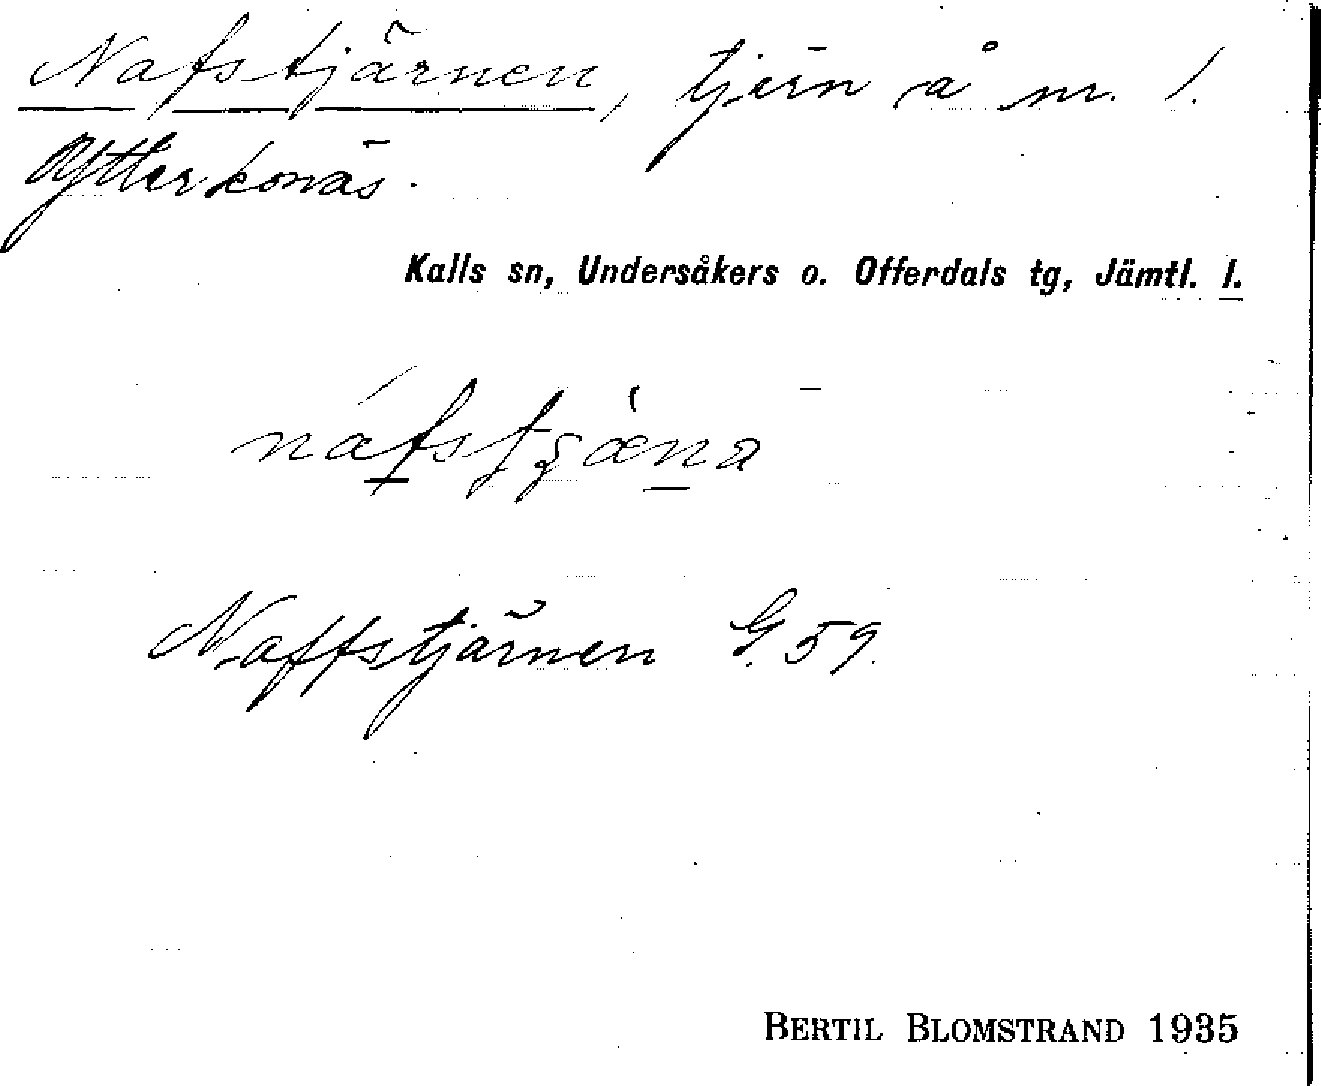 Nafstjärnen, tjärn å nr. 1.
Ytterkonäs.
Kalls sn, Undersåkers o. Offerdals tg, Jämtl. l.
Naffstjärnen G. 59.
BERTIL BLOMSTRAND 1935